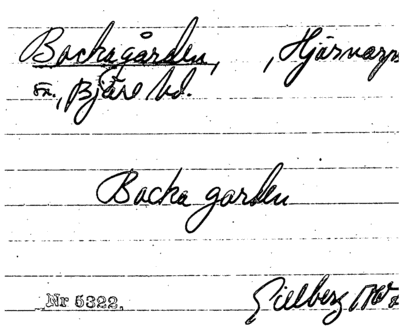 Backagården, , Hjärnarps
sn., Bjäre hd.
Backa garden
Nr 5322.
Gillberg